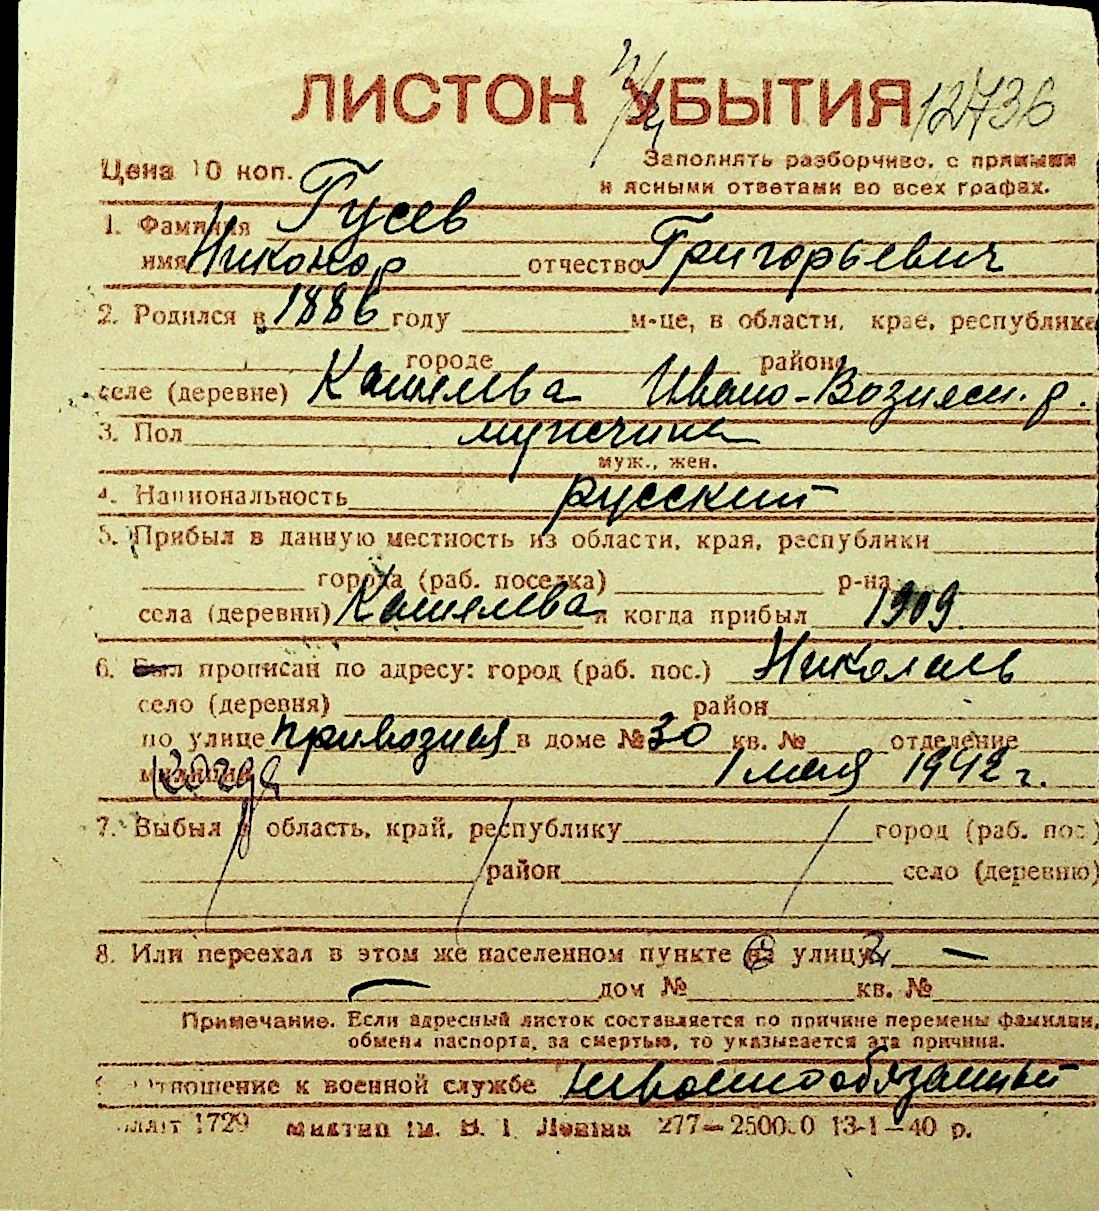 ЛИСТОК УБЫТИЯ 12736
Цена 10 коп. Заполнять разборчиво, с прямыми
и ясными ответами во всех графах.
1. Фамилия Гусев
имя Никонор отчество Григорьевич
2. Родился в 1886 году м-це, в области, крае, республике
городе районе
селе (деревне) Кашелева Ивано-Вознесн. р.
3. Пол мужчина
муж., жен.
4. Национальность русский
5. Прибыл в данную местность из области, края, республики
города (раб. поселка) р-на
села (деревни) Кашелева и когда прибыл 1909.
6. Был прописан по адресу: город (раб. пос.) Николаев
село (деревня) район
по улице Привозная в доме № 30 кв. № отделение
милиции когда 1 мая 1942 г.
7. Выбыл в область, край, республику город (раб. пос.)
район село (деревню)
8. Или переехал в этом же населенном пункте на улицу —
— дом № кв. №
Примечание. Если адресный листок составляется по причине перемены фамилии,
обмена паспорта, за смертью, то указывается эта причина.
Отношение к военной службе невоеннообязанный
1729 им. В. І. Леніна 277—2500.0 13-1—40 р.